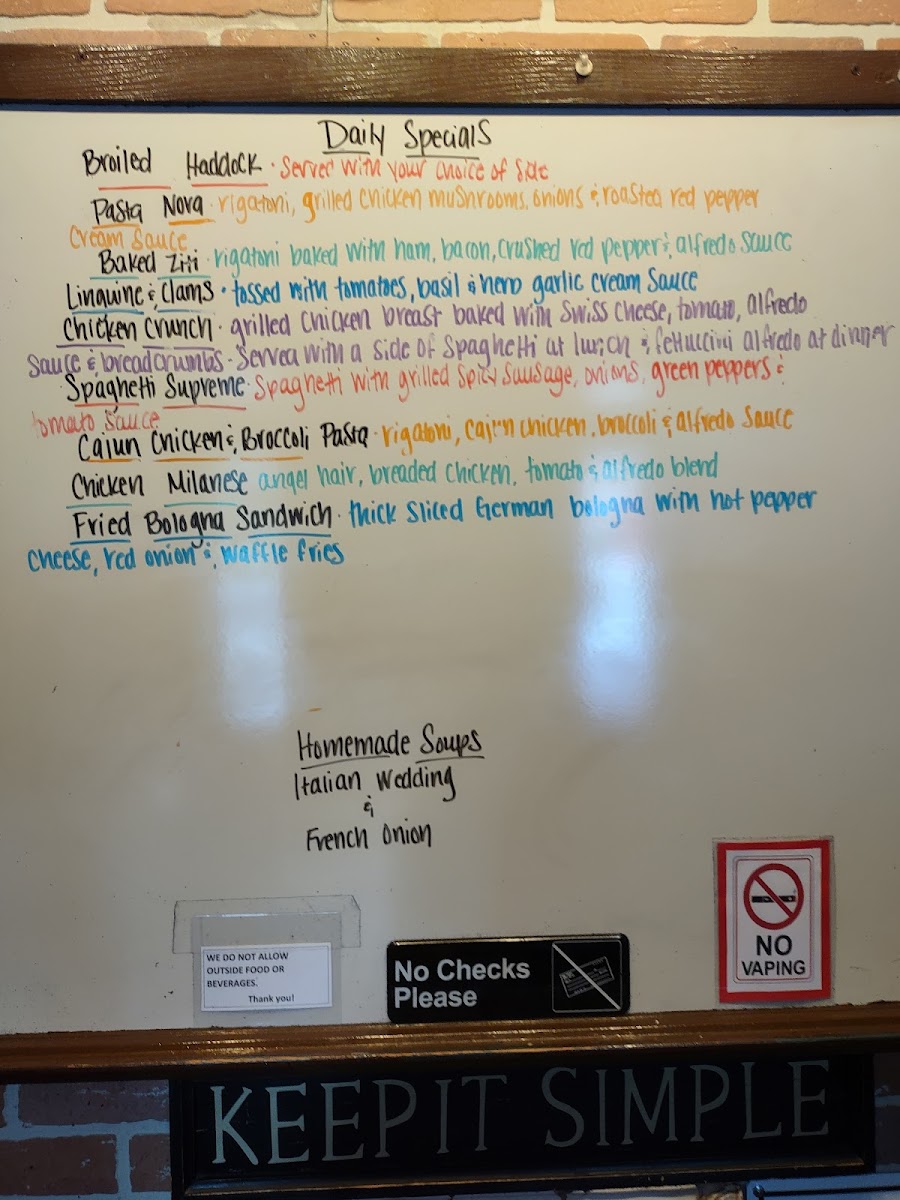 Daily Specials
Broiled Haddock · Served with your choice of side
Pasta Nova · rigatoni, grilled chicken mushrooms, onions & roasted red pepper
cream sauce
Baked Ziti · rigatoni baked with ham, bacon, crushed red pepper & alfredo sauce
Linguine & Clams · tossed with tomatoes, basil & herb garlic cream sauce
Chicken Crunch · grilled chicken breast baked with Swiss cheese, tomato, alfredo
sauce & breadcrumbs · Served with a side of Spaghetti at lunch & fettuccini alfredo at dinner
Spaghetti Supreme · Spaghetti with grilled spicy sausage, onions, green peppers &
tomato sauce
Cajun Chicken & Broccoli Pasta · rigatoni, cajun chicken, broccoli & alfredo sauce
Chicken Milanese angel hair, breaded chicken, tomato & alfredo blend
Fried Bologna Sandwich · thick sliced German bologna with hot pepper
cheese, red onion & waffle fries
Homemade Soups
Italian Wedding
&
French Onion
WE DO NOT ALLOW
OUTSIDE FOOD OR
BEVERAGES.
Thank you!
No Checks
Please
NO
VAPING
KEEP IT SIMPLE